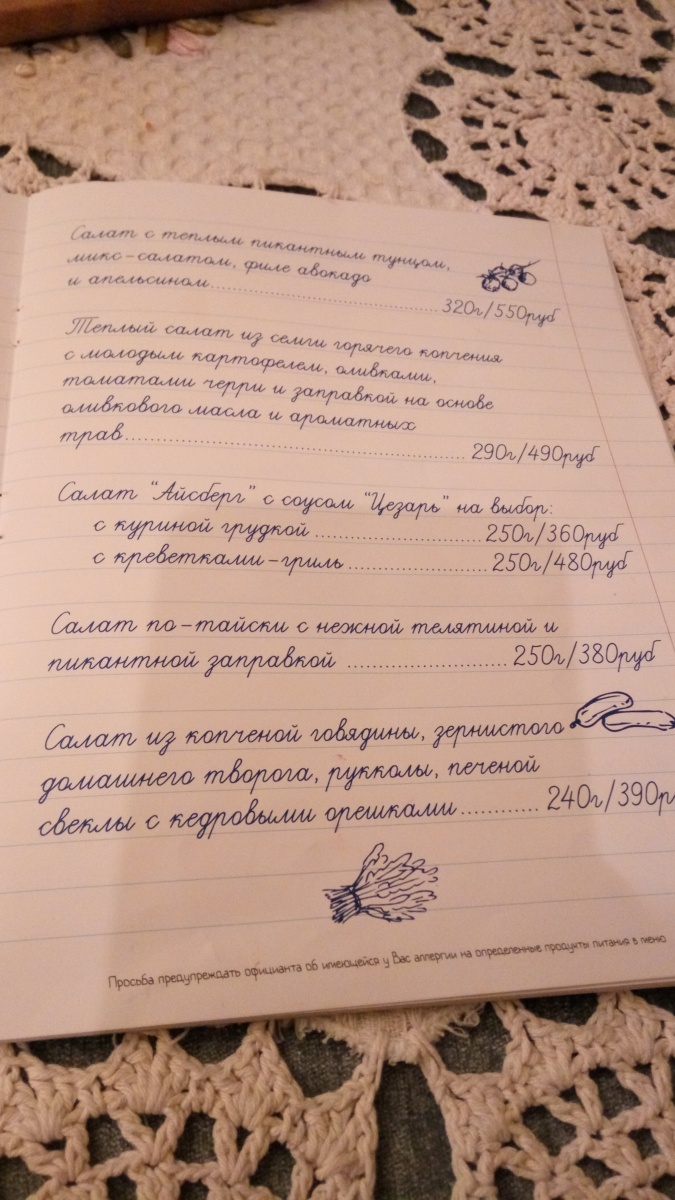 Салат с теплым пикантным тунцом,
микс-салатом, филе авокадо
и апельсином.......................................320г/550руб
Теплый салат из семги горячего копчения
с молодым картофелем, оливками,
томатами черри и заправкой на основе
оливкового масла и ароматных
трав............................................................290г/490руб
Салат "Айсберг" с соусом "Цезарь" на выбор:
с куриной грудкой..............................250г/360руб
с креветками-гриль.........................250г/480руб
Салат по-тайски с нежной телятиной и
пикантной заправкой ..........................250г/380руб
Салат из копченой говядины, зернистого
домашнего творога, рукколы, печеной
свеклы с кедровыми орешками............240г/390р
Просьба предупреждать официанта об имеющейся у Вас аллергии на определенные продукты питания в меню